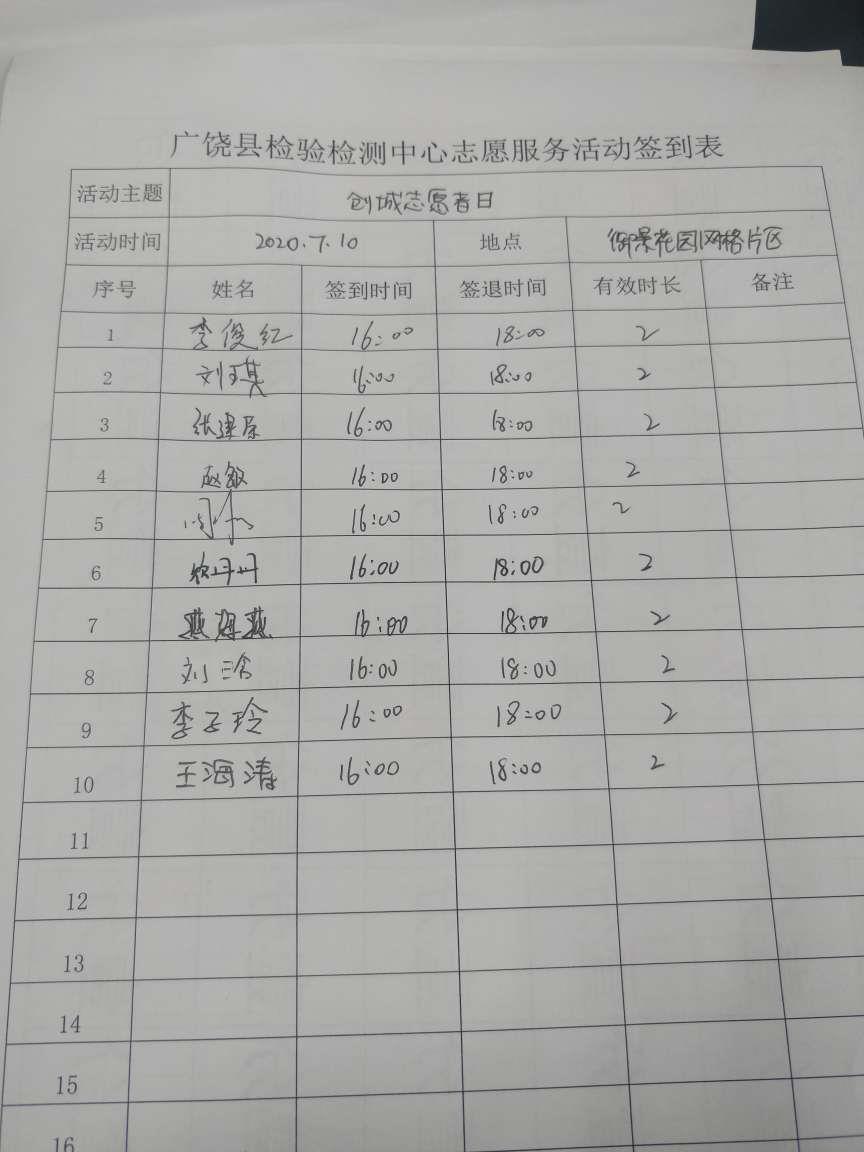 广饶县检验检测中心志愿服务活动签到表
活动主题 创城志愿者日
活动时间 2020.7.10 地点 御景花园网格片区
序号 姓名 签到时间 签退时间 有效时长 备注
1 李俊红 16:00 18:00 2
2 刘琪 16:00 18:00 2
3 张建 16:00 18:00 2
4 赵敏 16:00 18:00 2
5 16:00 18:00 2
6 丹丹 16:00 18:00 2
7 16:00 18:00 2
8 刘 16:00 18:00 2
9 李子玲 16:00 18:00 2
10 王海清 16:00 18:00 2
11
12
13
14
15
16